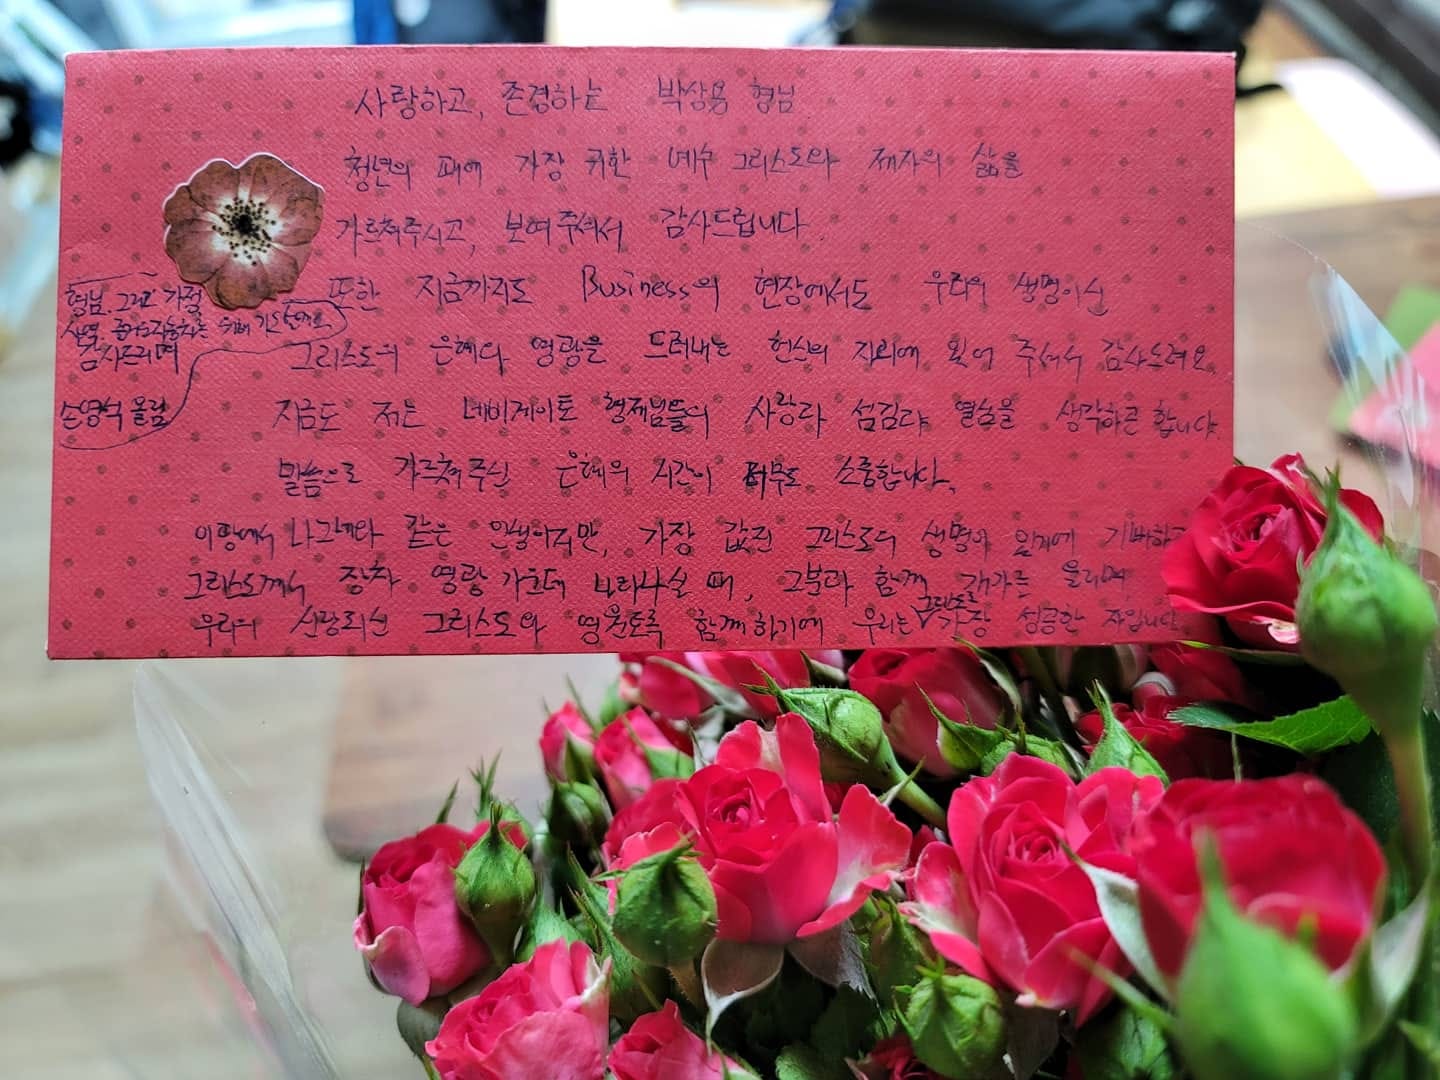 사랑하고, 존경하는 박상용 형님
청년의 때에 가장 귀한 예수 그리스도의 제자의 삶을
가르쳐주시고, 보여주셔서 감사드립니다.
또한 지금까지도 Business의 현장에서도 우리의 생명이신
그리스도의 은혜와 영광을 드러내는 헌신의 자리에 있어 주셔서 감사드려요.
지금도 저는 네비게이토 형제님들의 사랑과 섬김과 열심을 생각하곤 합니다.
말씀으로 가르쳐주신 은혜의 시간이 너무도 소중합니다.
이 땅에서 나그네와 같은 인생이지만, 가장 값진 그리스도의 생명의
그리스도께서 장차 영광 가운데 나타나실 때, 그분과 함께
우리의 신랑되신 그리스도와 영원토록 함께하기에 우리는 가장 성공한 자입니다.
형님. 그리고 가정
감사드리며
손영석 올림